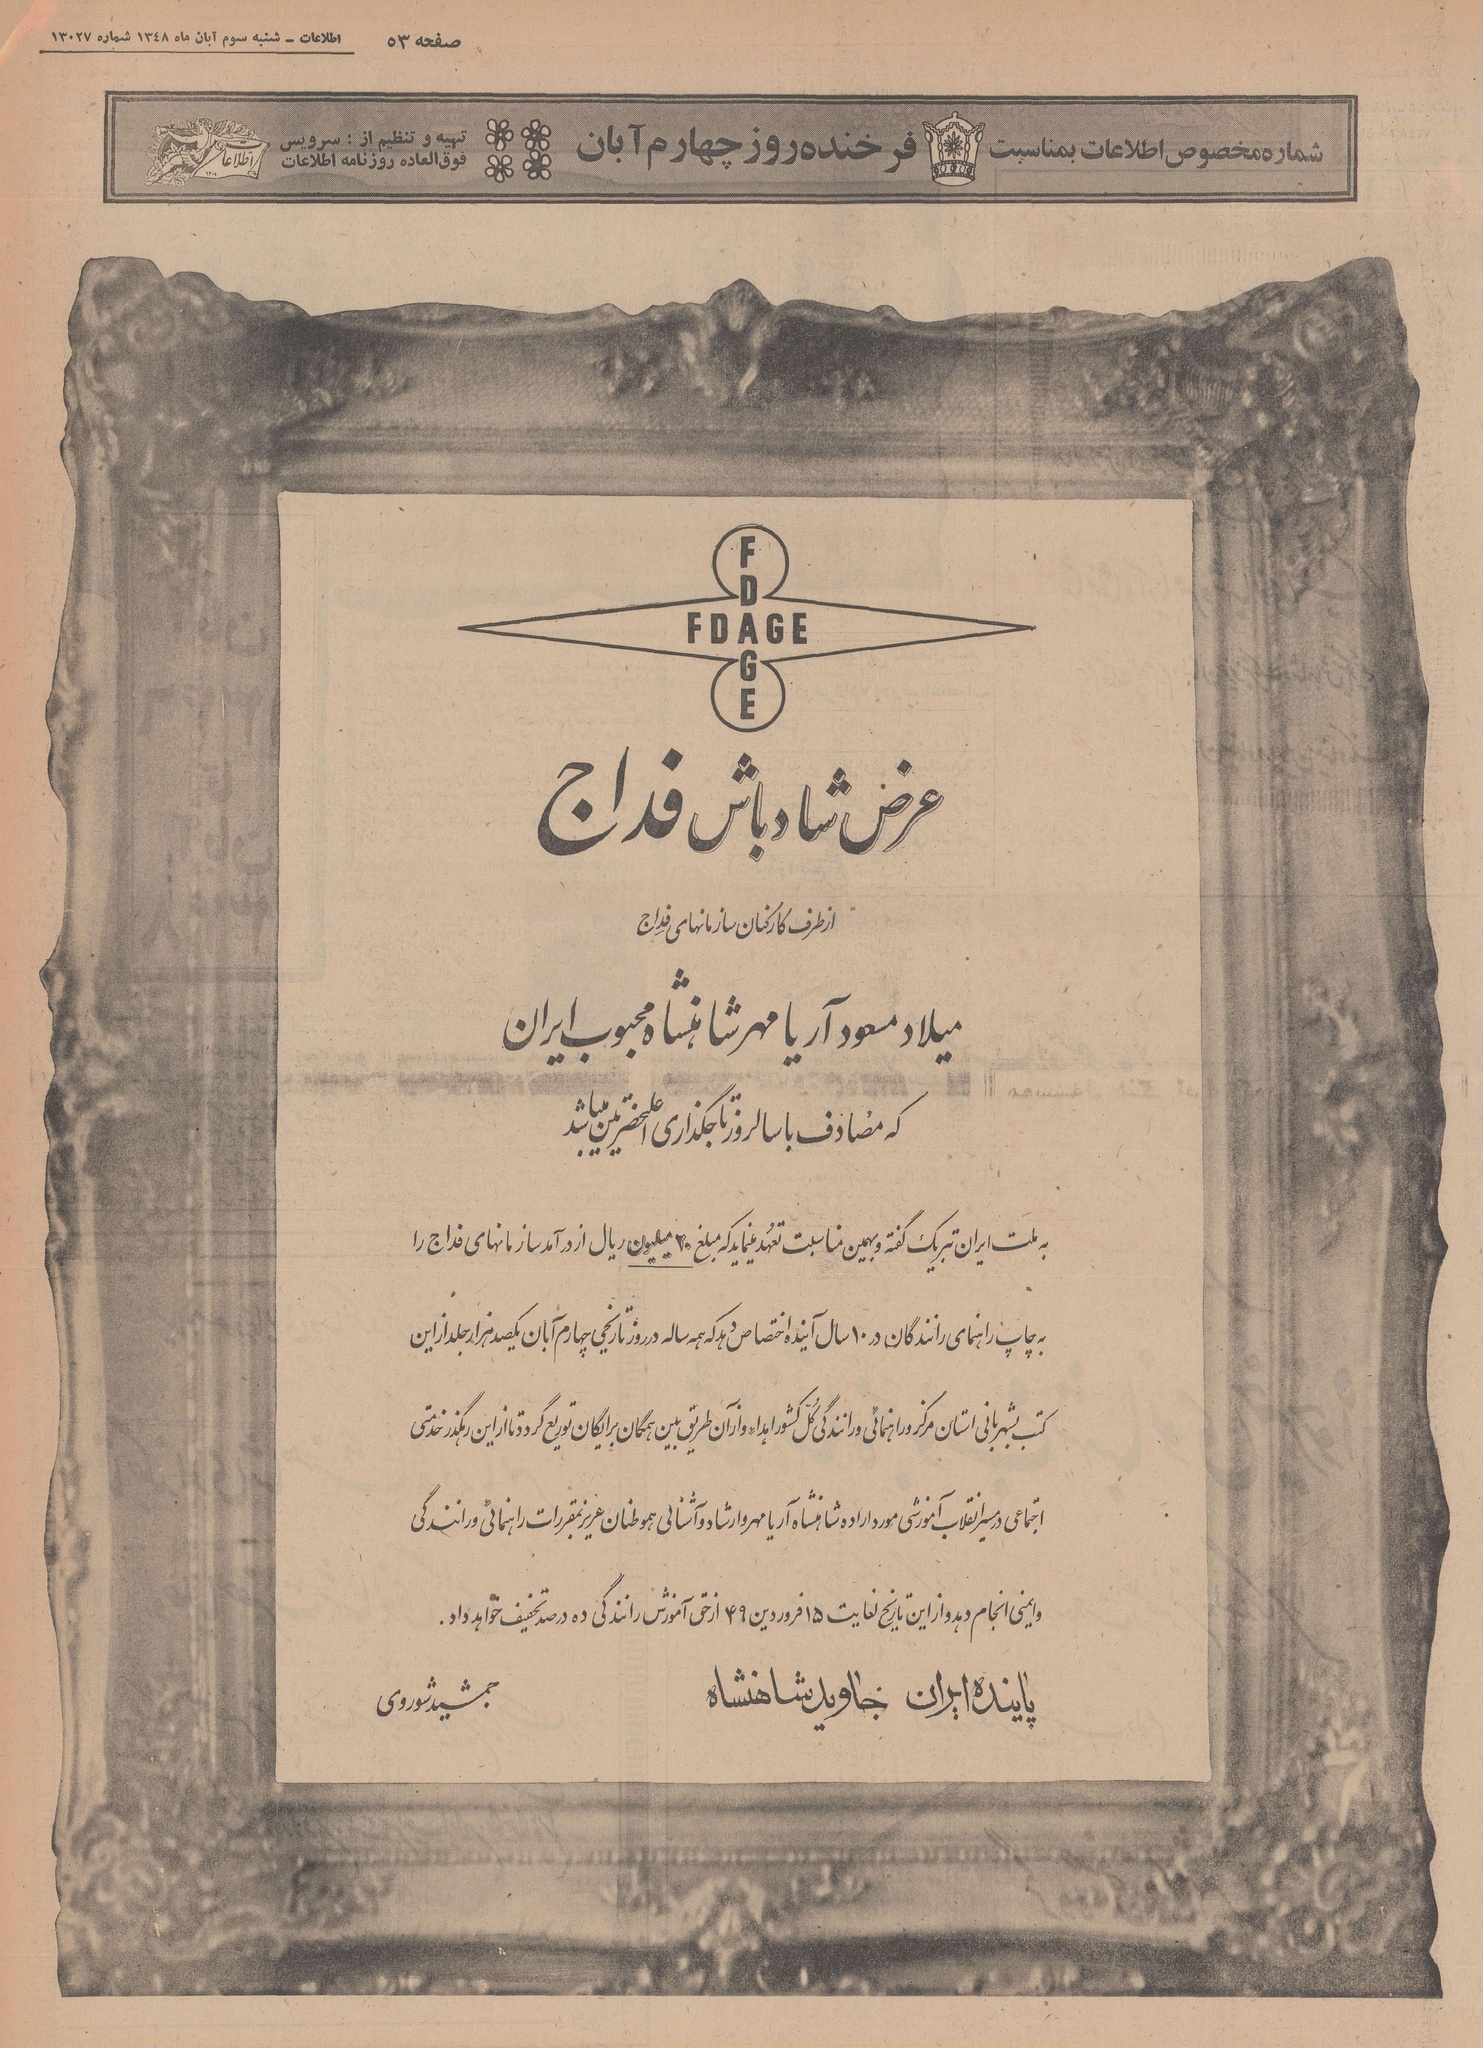 صفحه ۵۳
اطلاعات ـ شنبه سوم آبان ماه ۱۳٤۸ شماره ۱۳۰۲۷
شماره مخصوص اطلاعات بمناسبت فرخنده روز چهارم آبان
تهیه و تنظیم از : سرویس
فوق‌العاده روزنامه اطلاعات
اطلاعات
F
D
FDAGE
G
E
عرض شادباش فداج
از طرف کارکنان سازمانهای فداج
میلاد مسعود آریامهر شاهنشاه محبوب ایران
که مصادف با سالروز تاجگذاری اعلیحضرتین میباشد
به ملت ایران تبریک گفته و بهمین مناسبت تعهد مینماید که مبلغ ۳۰ میلیون ریال از درآمد سازمانهای فداج را
به چاپ راهنمای رانندگان در ۱۰ سال آینده اختصاص دهد که همه ساله در روز تاریخی چهارم آبان یکصد هزار جلد از این
کتب بشهربانی استان مرکز و راهنمائی و رانندگی کل کشور اهداء و از آن طریق بین همگان برایگان توزیع گردد تا از این رهگذر خدمتی
اجتماعی در مسیر انقلاب آموزشی مورد اراده شاهنشاه آریامهر و ارشاد و آشنائی هموطنان عزیز بمقررات راهنمائی و رانندگی
و ایمنی انجام دهد و از این تاریخ لغایت ۱۵ فروردین ۴۹ از حق آموزش رانندگی ده درصد تخفیف خواهد داد .
پاینده ایران جاوید شاهنشاه
جمشید شوروی